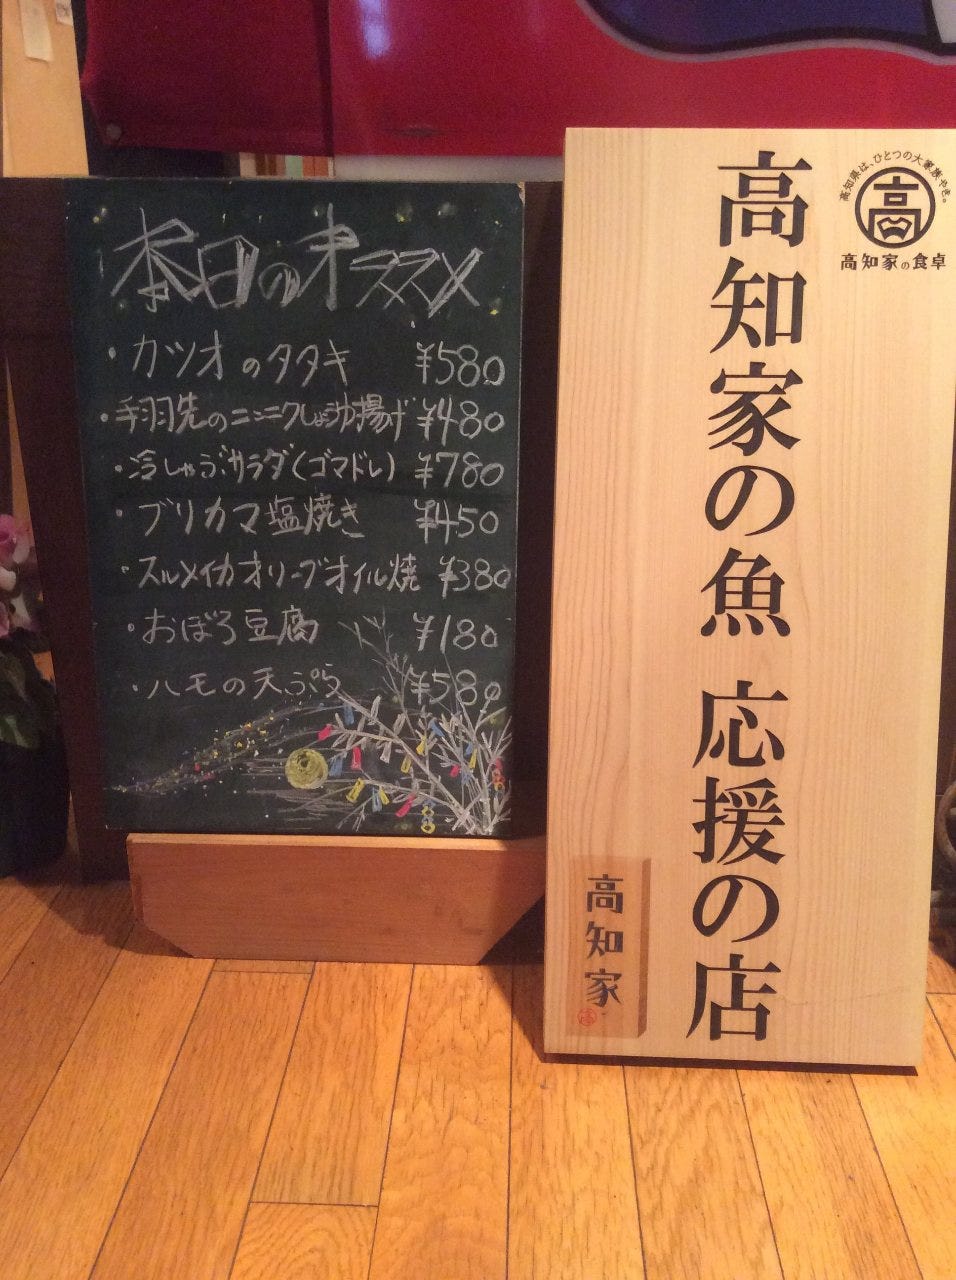 本日のオススメ
・カツオのタタキ ¥580
・手羽先のニンニクしょう油揚げ ¥480
・冷しゃぶサラダ(ゴマドレ) ¥780
・ブリカマ塩焼き ¥450
・スルメイカオリーブオイル焼 ¥380
・おぼろ豆腐 ¥180
・ハモの天ぷら ¥580
高知家の魚 応援の店
高知県は、ひとつの大家族やき。
高
高知家の食卓
高知家